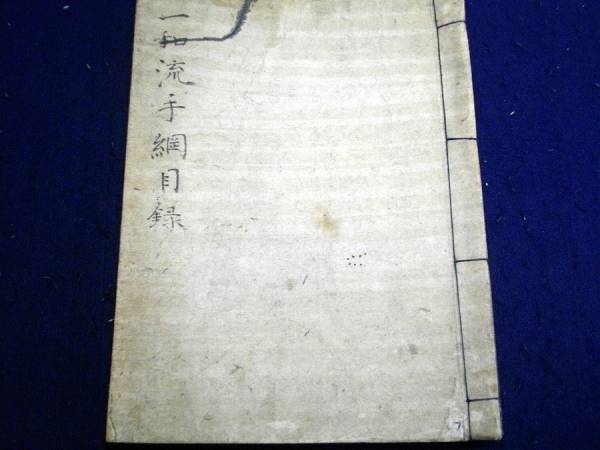 一和流手綱目録